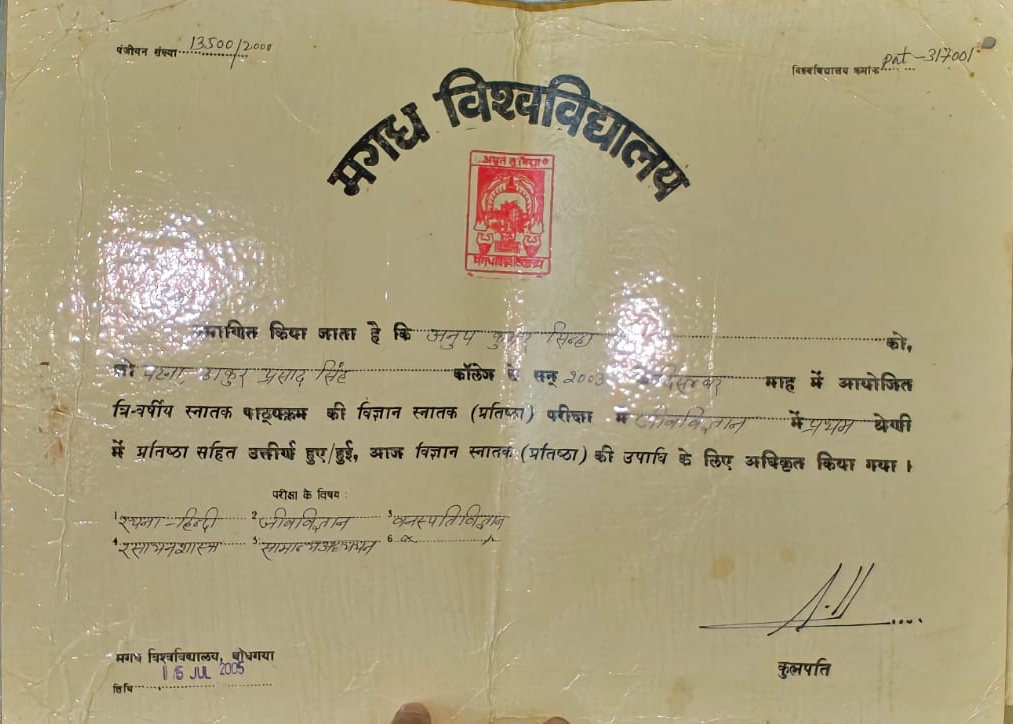 पंजीयन संख्या 13500/2000
विश्वविद्यालय क्रमांक Pat-317001
मगध विश्वविद्यालय
अमृतं तु विद्या
मगधविश्वविद्यालय
प्रमाणित किया जाता है कि अनुप कुमार सिन्हा को,
जो पटना, ठाकुर प्रसाद सिंह कॉलेज से सन् 2003 के दिसम्बर माह में आयोजित
त्रि-वर्षीय स्नातक पाठ्यक्रम की विज्ञान स्नातक (प्रतिष्ठा) परीक्षा में जीवविज्ञान में प्रथम श्रेणी
में प्रतिष्ठा सहित उत्तीर्ण हुए/हुई, आज विज्ञान स्नातक (प्रतिष्ठा) की उपाधि के लिए अधिकृत किया गया।
परीक्षा के विषय :
1 रचना-हिन्दी 2 जीवविज्ञान 3 वनस्पतिविज्ञान
4 रसायनशास्त्र 5 सामान्यअध्ययन 6
कुलपति
मगध विश्वविद्यालय, बोधगया
15 JUL 2005
तिथि